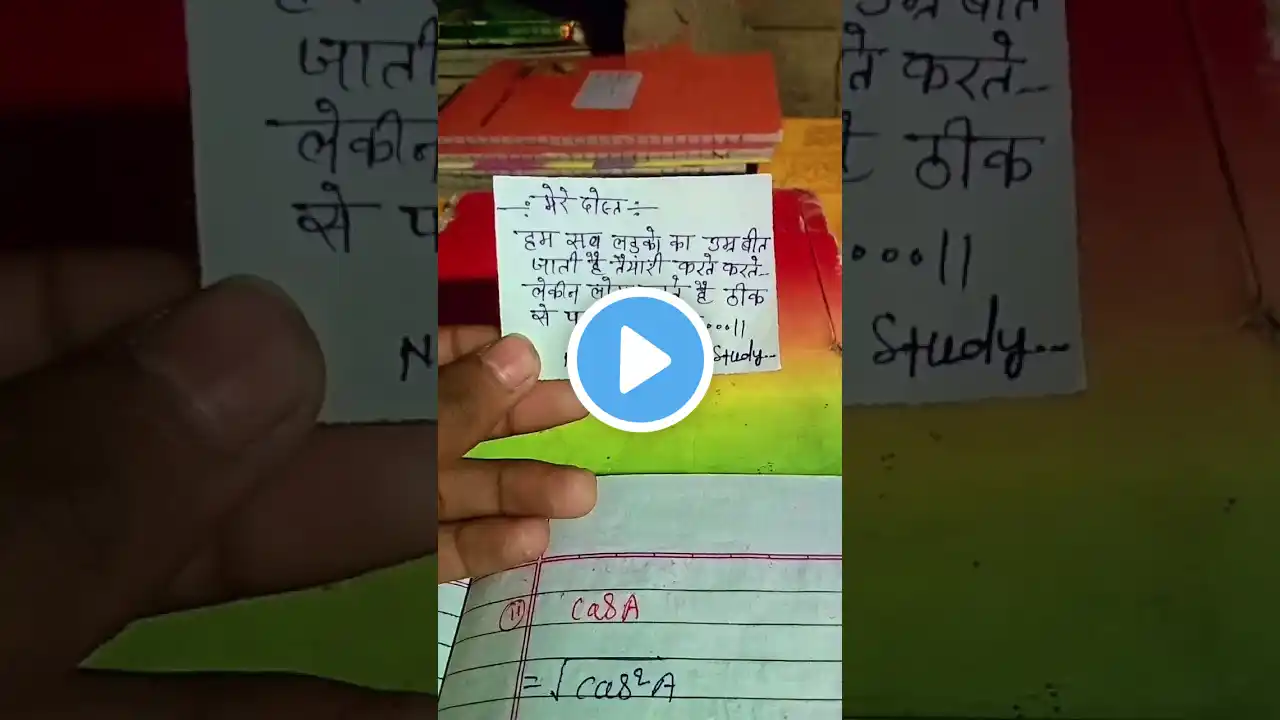 -: मेरे दोस्त :-
हम सब लड़को का उम्र बीत
जाती है तैयारी करते करते--
लेकीन है ठीक
से ...||
Study...
(11) cos A
= √cos²A